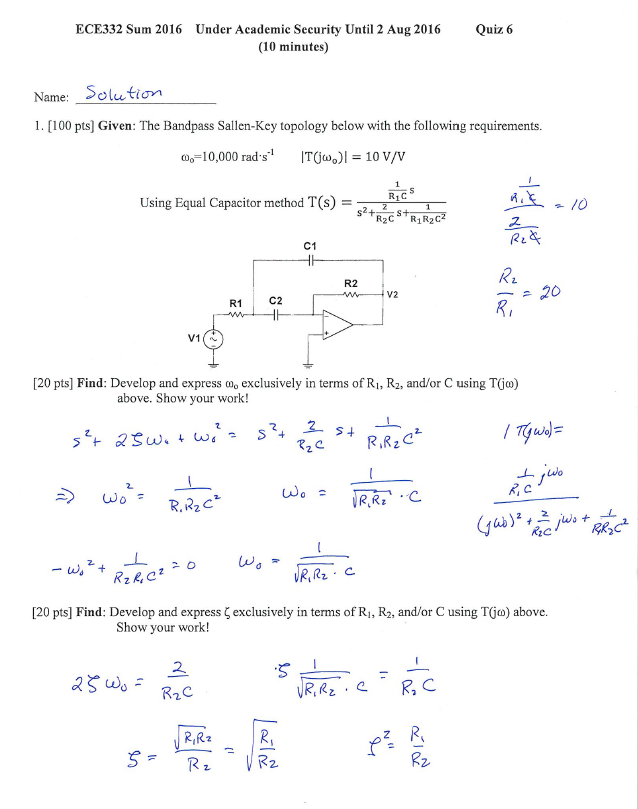 ECE332 Sum 2016 Under Academic Security Until 2 Aug 2016 Quiz 6
(10 minutes)
Name: Solution
1. [100 pts] Given: The Bandpass Sallen-Key topology below with the following requirements.
ω₀=10,000 rad·s⁻¹ |T(jω₀)| = 10 V/V
Using Equal Capacitor method T(s) = (1/(R₁C) s)/(s²+2/(R₂C) s+1/(R₁R₂C²))
(1/(R₁C))/(2/(R₂C)) = 10
R₂/R₁ = 20
C1
R2
V2
R1 C2
V1
[20 pts] Find: Develop and express ω₀ exclusively in terms of R₁, R₂, and/or C using T(jω)
above. Show your work!
s² + 2ζω₀ + ω₀² = s² + 2/(R₂C) s + 1/(R₁R₂C²)
|T(jω₀)| =
(1/(R₁C) jω₀)/((jω₀)² + 2/(R₂C) jω₀ + 1/(R₁R₂C²))
⇒ ω₀² = 1/(R₁R₂C²) ω₀ = 1/(√(R₁R₂) · C)
-ω₀² + 1/(R₂R₁C²) = 0 ω₀ = 1/(√(R₁R₂) · C)
[20 pts] Find: Develop and express ζ exclusively in terms of R₁, R₂, and/or C using T(jω) above.
Show your work!
2ζω₀ = 2/(R₂C) ζ 1/(√(R₁R₂) · C) = 1/(R₂C)
ζ = √(R₁R₂)/R₂ = √(R₁/R₂) ζ² = R₁/R₂